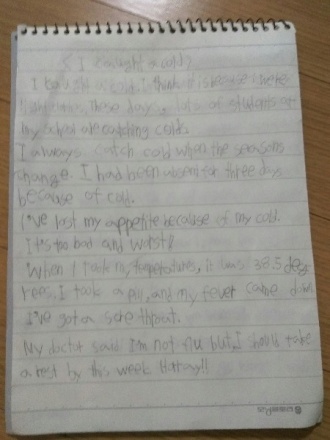 < I caught a cold >
I caught a cold. I think it is because I were
These days, lots of students at
my school are catching colds.
I always catch cold when the seasons
change. I had been absent for three days
because of cold.
I've lost my appetite because of my cold.
It's too bad and worst!!
When I took my temperatures, it was 38.5 deg
rees. I took a pill, and my fever came down.
I've got a sore throat.
My doctor said I'm not flu but, I should take
a rest by this week.